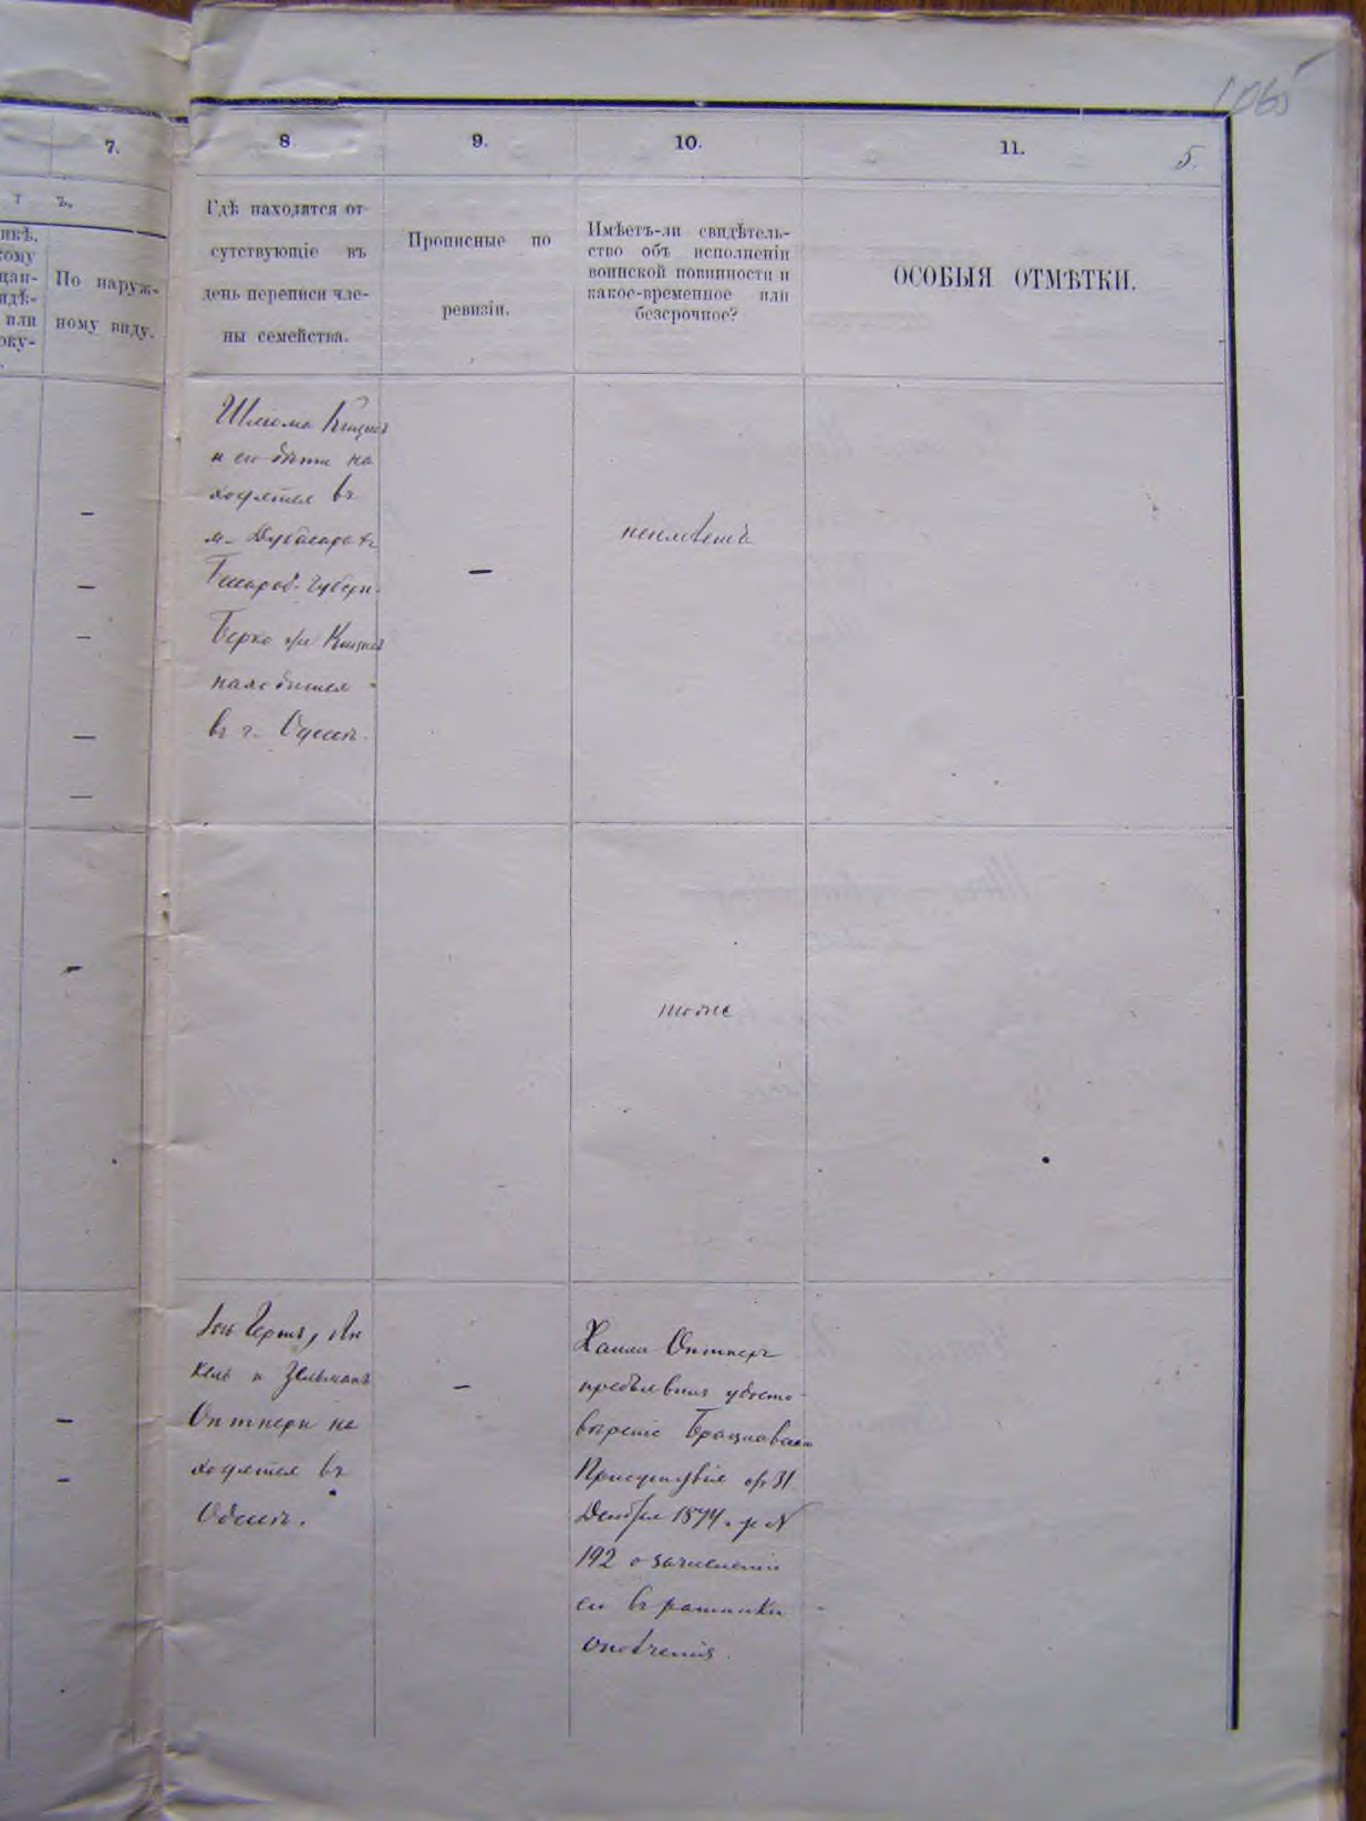 1065
7.
8
9.
10.
11.
5.
т ъ.
По наруж-
ному виду.
Гдѣ находятся от-
сутствующіе въ
день переписи чле-
ны семейства.
Прописные по
ревизіи.
Имѣетъ-ли свидѣтель-
ство объ исполненіи
воинской повинности и
какое-временное или
безсрочное?
ОСОБЫЯ ОТМѢТКИ.
Шлиома
и его дѣти на
ходятся въ
м. Дубасарахъ
губерн.
Берко
находится
въ г. Одессѣ.
—
неимѣетъ
тоже
Гершъ, Ян
кель и Зельманъ
Оптнери на
ходятся въ
Одессѣ.
—
Хаимъ Оптнеръ
предъявилъ удосто-
вѣреніе Брацлавскаго
Присутствія от 31
Декабря 1874 г. за №
192 о зачисленіи
его въ ратники
ополченія.